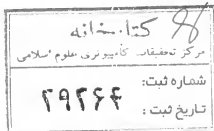 کتابخانه
مرکز تحقیقات کامپیوتری علوم اسلامی
شماره ثبت:
۲۹۲۶۴
تاریخ ثبت: